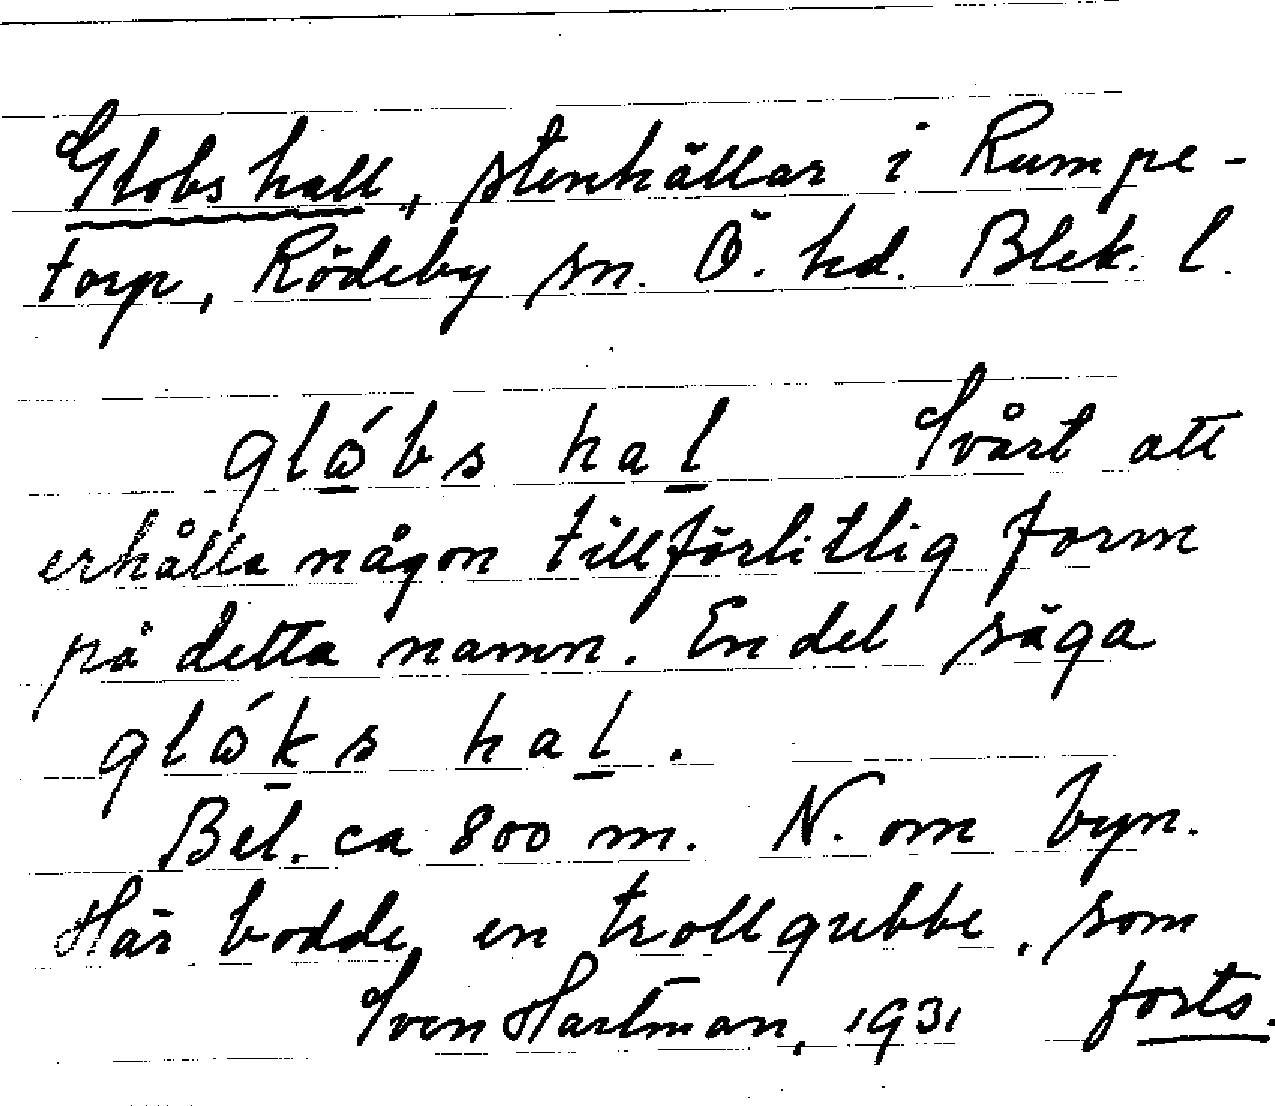 Globshall, stenhällar i Rumpe-
torp, Rödeby sn. Ö. hd. Blek. l.
glǻbs hal Svårt att
erhålla någon tillförlitlig form
på detta namn. En del säga
glǻks hal.
Bel. ca 800 m. N. om byn.
Här bodde en trollgubbe, som
Sven Hartman, 1931 forts.